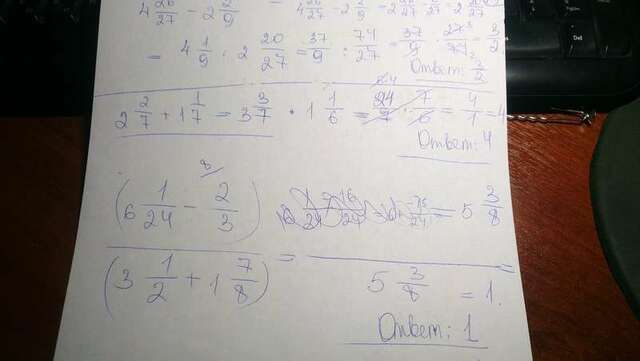 4 26/27 - 2 2/9
= 4 1/9 : 2 20/27 = 37/9 : 74/27 = 37/9 · 27/74 = 3/2
Ответ: 3/2
2 2/7 + 1 1/7 = 3 3/7 · 1 1/6 = 24/7 · 7/6 = 4/1 = 4
Ответ: 4
(6 1/24 - 2/3) = 5 3/8
(3 1/2 + 1 7/8) = 5 3/8 = 1.
Ответ: 1